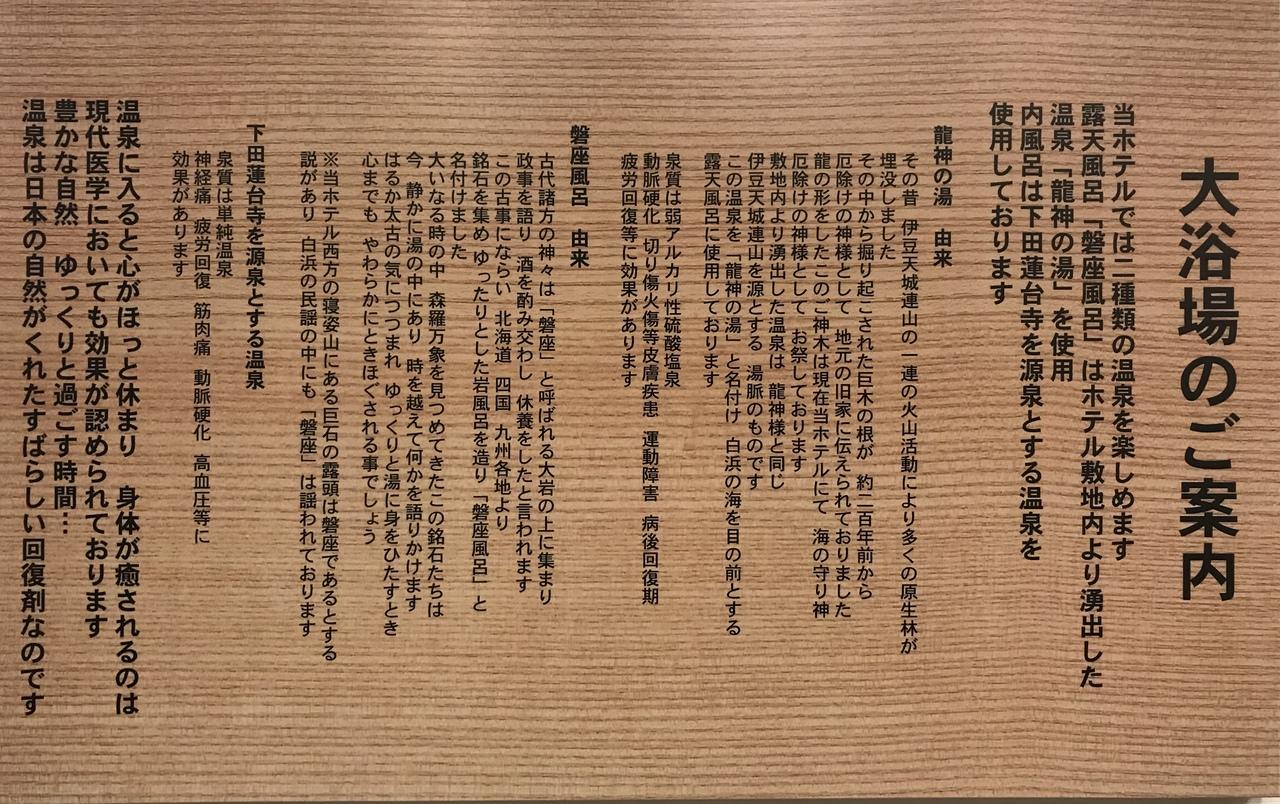 大浴場のご案内
当ホテルでは二種類の温泉を楽しめます
露天風呂「磐座風呂」はホテル敷地内より湧出した
温泉「龍神の湯」を使用
内風呂は下田蓮台寺を源泉とする温泉を
使用しております
龍神の湯　由来
その昔　伊豆天城連山の一連の火山活動により多くの原生林が
埋没しました
その中から掘り起こされた巨木の根が　約二百年前から
厄除けの神様として　地元の旧家に伝えられておりました
龍の形をしたこのご神木は現在当ホテルにて　海の守り神
厄除けの神様として　お祭しております
敷地内より湧出した温泉は　龍神様と同じ
伊豆天城連山を源とする　湯脈のものです
この温泉を「龍神の湯」と名付け　白浜の海を目の前とする
露天風呂に使用しております
泉質は弱アルカリ性硫酸塩泉
動脈硬化　切り傷火傷等皮膚疾患　運動障害　病後回復期
疲労回復等に効果があります
磐座風呂　由来
古代諸方の神々は「磐座」と呼ばれる大岩の上に集まり
政事を語り　酒を酌み交わし　休養をしたと言われます
この古事にならい　北海道　四国　九州各地より
銘石を集め　ゆったりとした岩風呂を造り「磐座風呂」と
名付けました
大いなる時の中　森羅万象を見つめてきたこの銘石たちは
今　静かに湯の中にあり　時を越えて何かを語りかけます
はるか太古の気につつまれ　ゆっくりと湯に身をひたすとき
心までも　やわらかにときほぐされる事でしょう
※当ホテル西方の寝姿山にある巨石の露頭は磐座であるとする
説があり　白浜の民謡の中にも「磐座」は謡われております
下田蓮台寺を源泉とする温泉
泉質は単純温泉
神経痛　疲労回復　筋肉痛　動脈硬化　高血圧等に
効果があります
温泉に入ると心がほっと休まり　身体が癒されるのは
現代医学においても効果が認められております
豊かな自然　ゆっくりと過ごす時間…
温泉は日本の自然がくれたすばらしい回復剤なのです